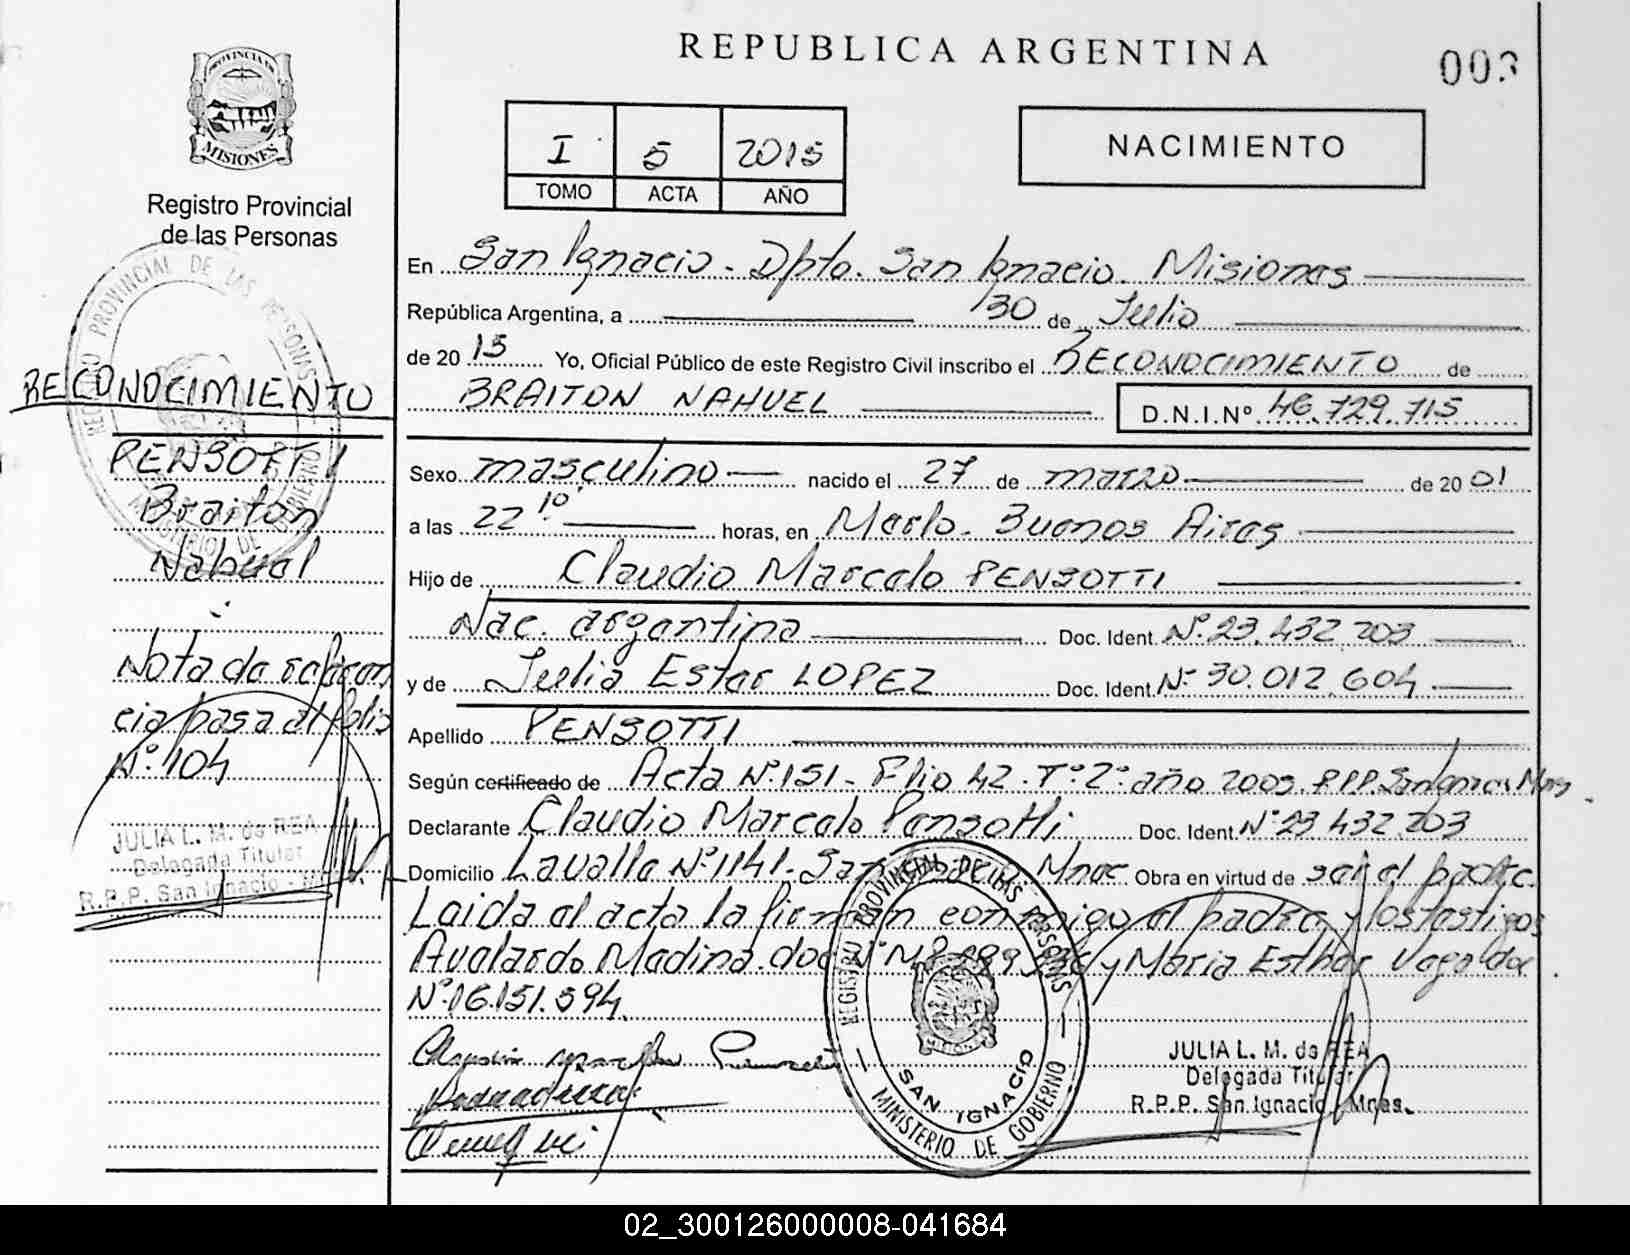 REPUBLICA ARGENTINA
003
PROVINCIA DE
MISIONES
Registro Provincial
de las Personas
I 5 2015
TOMO ACTA AÑO
NACIMIENTO
En San Ignacio. Dpto. San Ignacio. Misiones
República Argentina, a 30 de Julio
de 20 15 Yo, Oficial Público de este Registro Civil inscribo el RECONOCIMIENTO de
BRAITON NAHUEL D.N.I.Nº 46.729.715
Sexo masculino nacido el 27 de marzo de 20 01
a las 22:10' horas, en Merlo. Buenos Aires
Hijo de Claudio Marcelo PENSOTTI
Nac. argentina Doc. Ident. Nº 23.432.203
y de Julia Ester LOPEZ Doc. Ident. Nº 30.012.604
Apellido PENSOTTI
Según certificado de Acta Nº 151 - Flio 42. Tº 2º año 2003. RPP.
Declarante Claudio Marcelo Pensotti Doc. Ident. Nº 23 432.203
Domicilio Lavalle Nº 1141. San Mnes Obra en virtud de ser el padre.
Leida el acta la firman conmigo el padre y los testigos
Avelardo Medina. doc Nº y Maria Esther Vega doc
Nº 16.151.594.
RECONOCIMIENTO
PENSOTTI
Braiton
Nahuel
Nota de referen
cia pasa al folio
Nº 104
JULIA L. M. de REA
Delegada Titular
R.P.P. San Ignacio - M
REGISTRO PROVINCIAL DE LAS PERSONAS
MINISTERIO DE GOBIERNO
REGISTRO PROVINCIAL DE LAS PERSONAS
SAN IGNACIO
MINISTERIO DE GOBIERNO
JULIA L. M. de REA
Delegada Titular
R.P.P. San Ignacio Mnes.
02_300126000008-041684